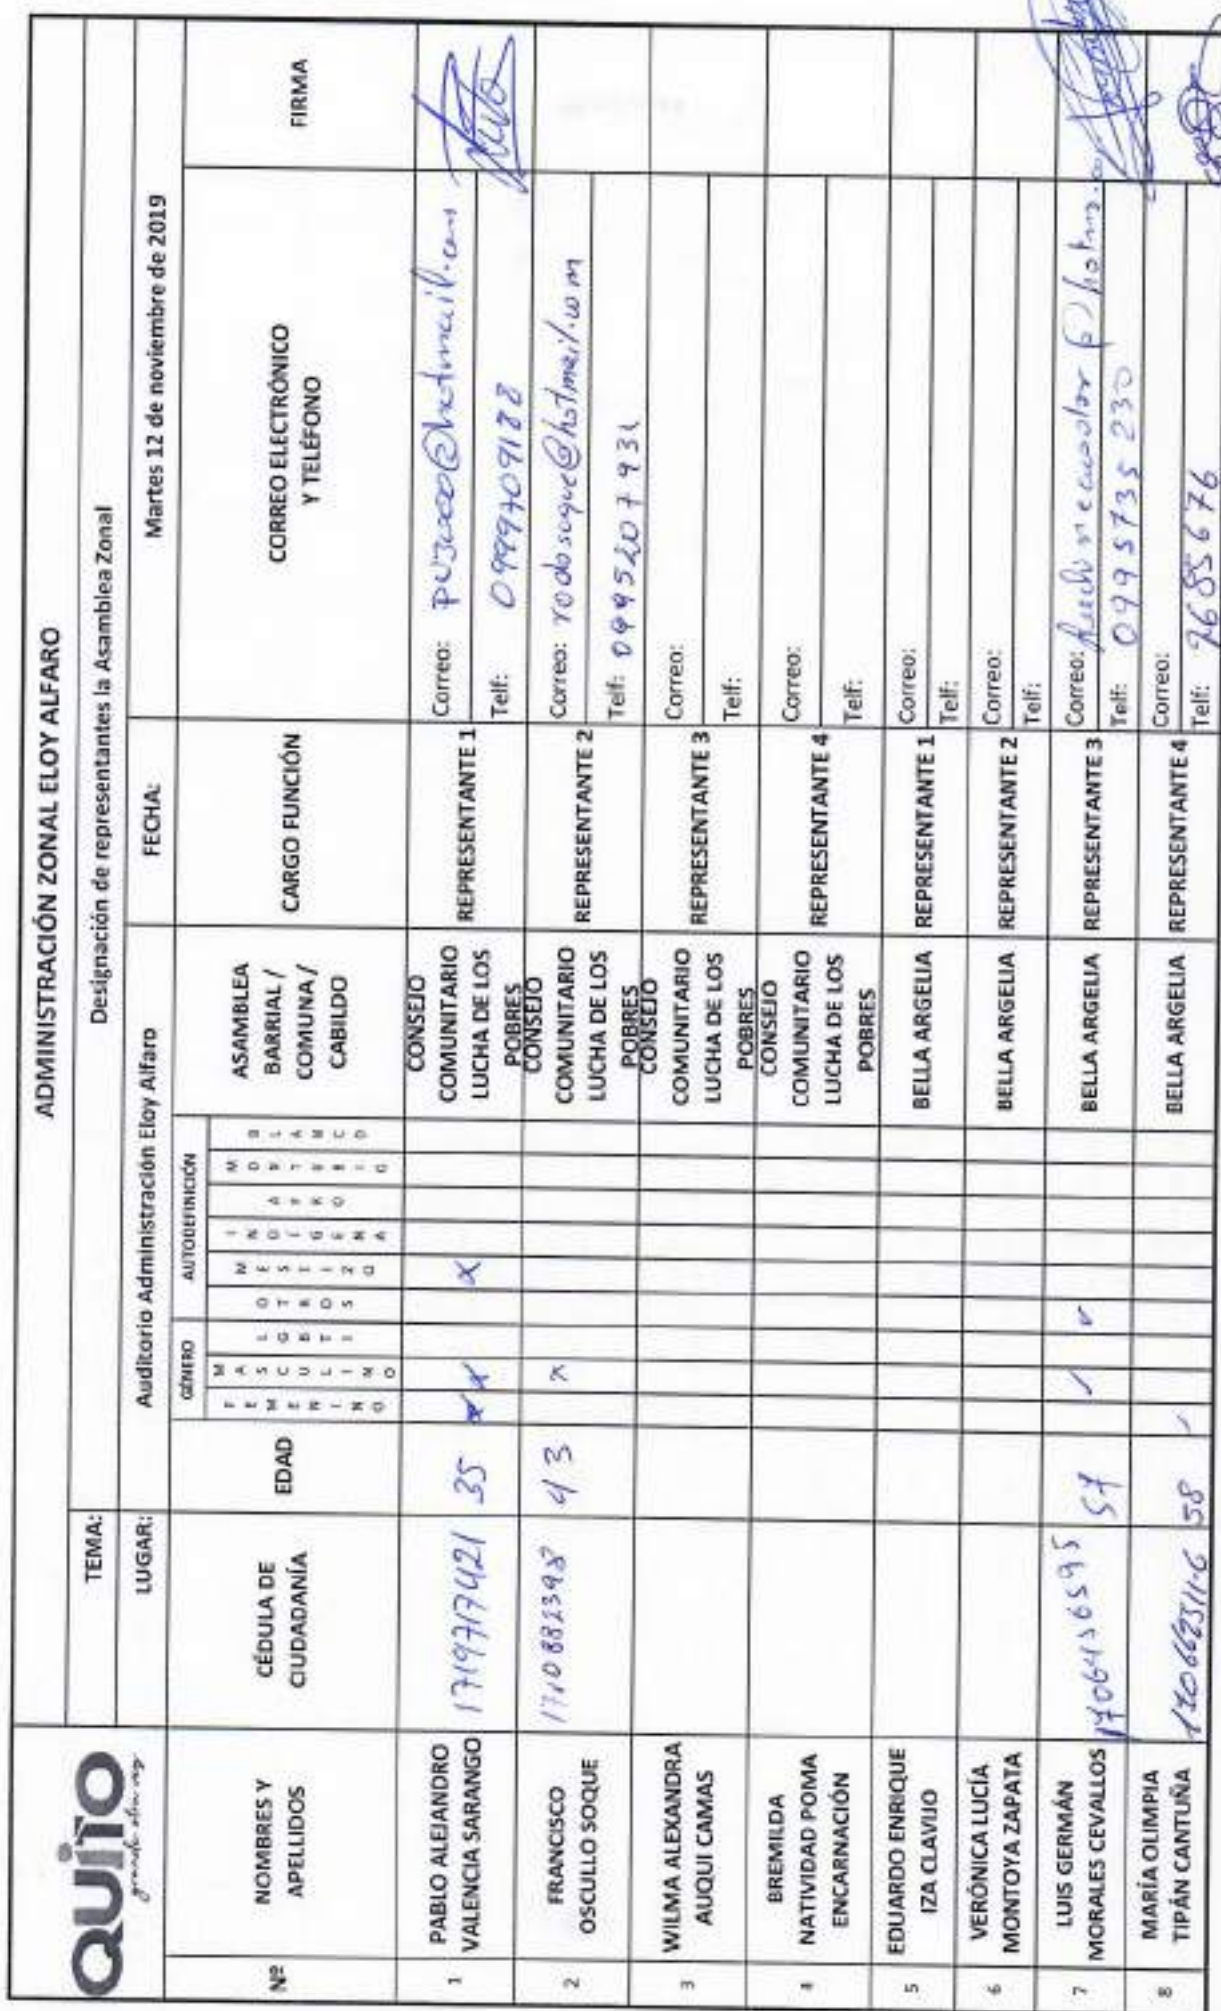 QUITO
grande otra vez
ADMINISTRACIÓN ZONAL ELOY ALFARO
TEMA: Designación de representantes la Asamblea Zonal
LUGAR: Auditorio Administración Eloy Alfaro FECHA: Martes 12 de noviembre de 2019
Nº NOMBRES Y APELLIDOS CÉDULA DE CIUDADANÍA EDAD GÉNERO AUTODEFINICIÓN ASAMBLEA BARRIAL / COMUNA/ CABILDO CARGO FUNCIÓN CORREO ELECTRÓNICO Y TELÉFONO FIRMA
FEMENINO MASCULINO LGBTI OTROS MESTIZO INDIGENA AFRO MONTUBIO BLANCO
1 PABLO ALEJANDRO VALENCIA SARANGO 1719717421 35 X X X CONSEJO COMUNITARIO LUCHA DE LOS POBRES REPRESENTANTE 1 Correo:
Telf: 0999709188
2 FRANCISCO OSCULLO SOQUE 1710882398 43 X CONSEJO COMUNITARIO LUCHA DE LOS POBRES REPRESENTANTE 2 Correo: rodosoque@hotmail.com
Telf: 0995207931
3 WILMA ALEXANDRA AUQUI CAMAS CONSEJO COMUNITARIO LUCHA DE LOS POBRES REPRESENTANTE 3 Correo:
Telf:
4 BREMILDA NATIVIDAD POMA ENCARNACIÓN CONSEJO COMUNITARIO LUCHA DE LOS POBRES REPRESENTANTE 4 Correo:
Telf:
5 EDUARDO ENRIQUE IZA CLAVIJO BELLA ARGELIA REPRESENTANTE 1 Correo:
Telf:
6 VERÓNICA LUCÍA MONTOYA ZAPATA BELLA ARGELIA REPRESENTANTE 2 Correo:
Telf:
7 LUIS GERMÁN MORALES CEVALLOS 1706436595 57 BELLA ARGELIA REPRESENTANTE 3 Correo:
Telf: 0995735230
8 MARÍA OLIMPIA TIPÁN CANTUÑA 58 BELLA ARGELIA REPRESENTANTE 4 Correo:
Telf: 2685676